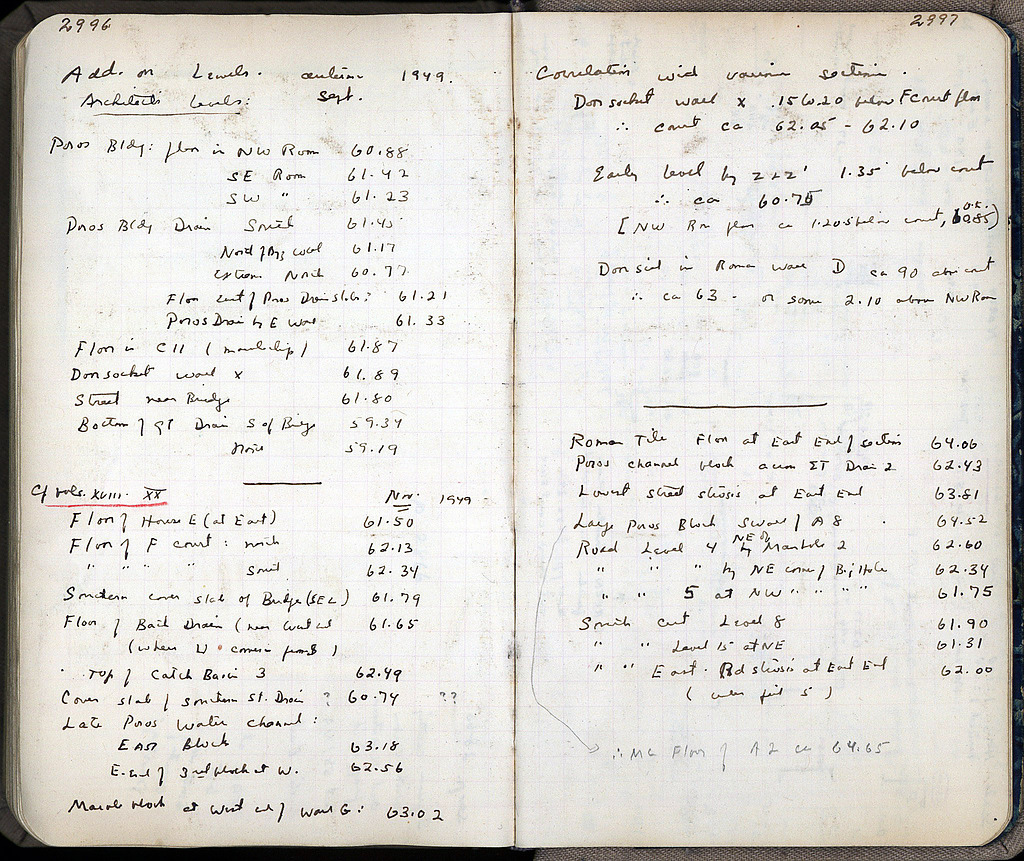 2996
Add. on Levels. autumn 1949.
Architects levels: Sept.
Poros Bldg: floor in NW Room 60.88
SE Room 61.42
SW " 61.23
Poros Bldg Drain South 61.45
North of Big wall 61.17
Extreme North 60.77
Floor east of Poros Drain slabs: 61.21
Poros Drain by E Wall 61.33
Floor in C11 (marble chip) 61.87
Door socket wall x 61.89
Street near Bridge 61.80
Bottom of Gt Drain S of Bridge 59.34
North 59.19
Cf vols. XVIII. XX
Nov. 1949
Floor of House E (at East) 61.50
Floor of F court: north 62.13
" " " " South 62.34
Southern cover slab of Bridge (SEC) 61.79
Floor of Bath Drain (near West end 61.65
(where W comes from S)
Top of Catch Basin 3 62.49
Cover slab of Southern St. Drain ? 60.74 ??
Late Poros Water channel:
East Block 63.18
E. end of 3rd block at W. 62.56
Marble block at West end of wall G: 63.02
2997
Correlation with various sections.
Door socket wall x .15 to .20 below F court floor
∴ court ca 62.05 - 62.10
Early level by Z + Z' 1.35 below court
∴ ca 60.75
[NW Rm floor ca 1.20 below court, 60.85)
Door sill in Roman wall D ca 90 above court
∴ ca 63 - or some 2.10 above NW Room
Roman Tile Floor at East End of section 64.06
Poros channel block across ST Drain 2 62.43
Lowest street strosis at East End 63.81
Large Poros Block SW cor of A 8 64.52
Road Level 4 NE of Manhole 2 62.60
" " " by NE corner of Big Hole 62.34
" " 5 at NW " " " " 61.75
South cut Level 8 61.90
" " Level 15 at NE 61.31
" " East. Rd strosis at East End 62.00
(under first 5)
∴ Floor of A 2 ca 64.65